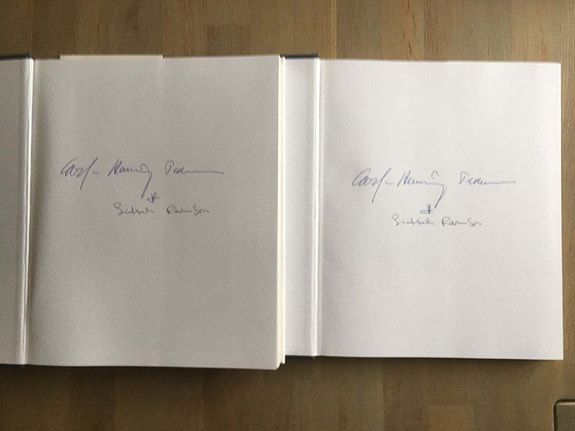 Carl-Henning Pedersen
&
Sidsel Ramson
Carl-Henning Pedersen
&
Sidsel Ramson